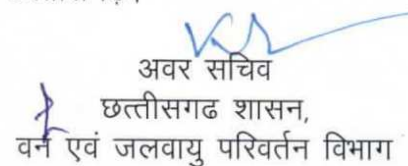 अवर सचिव
छत्तीसगढ शासन,
वन एवं जलवायु परिवर्तन विभाग